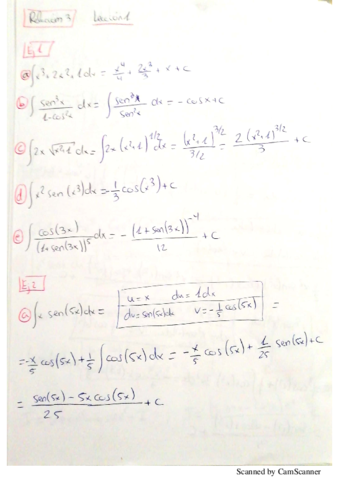 Relación 3
Ej 1
a) ∫x³+2x²+1dx = x⁴/4 + 2x³/3 + x + c
b) ∫ sen³x/(1-cos²x) dx = ∫ sen³x/sen²x dx = -cosx+c
c) ∫2x √(x²+1) dx = ∫2x (x²+1)^(1/2) dx = (x²+1)^(3/2)/(3/2) = 2(x²+1)^(3/2)/3 + c
d) ∫x² sen(x³)dx = -1/3 cos(x³)+c
e) ∫ cos(3x)/(1+sen(3x))⁵ dx = - (1+sen(3x))^(-4)/12 + c
Ej 2
a) ∫x sen(5x)dx = | u=x du=1dx =
dv=sen(5x)dx v=-1/5 cos(5x) |
= -x/5 cos(5x) + 1/5 ∫cos(5x)dx = -x/5 cos(5x) + 1/25 sen(5x)+c
= (sen(5x) - 5x cos(5x))/25 + c
Scanned by CamScanner